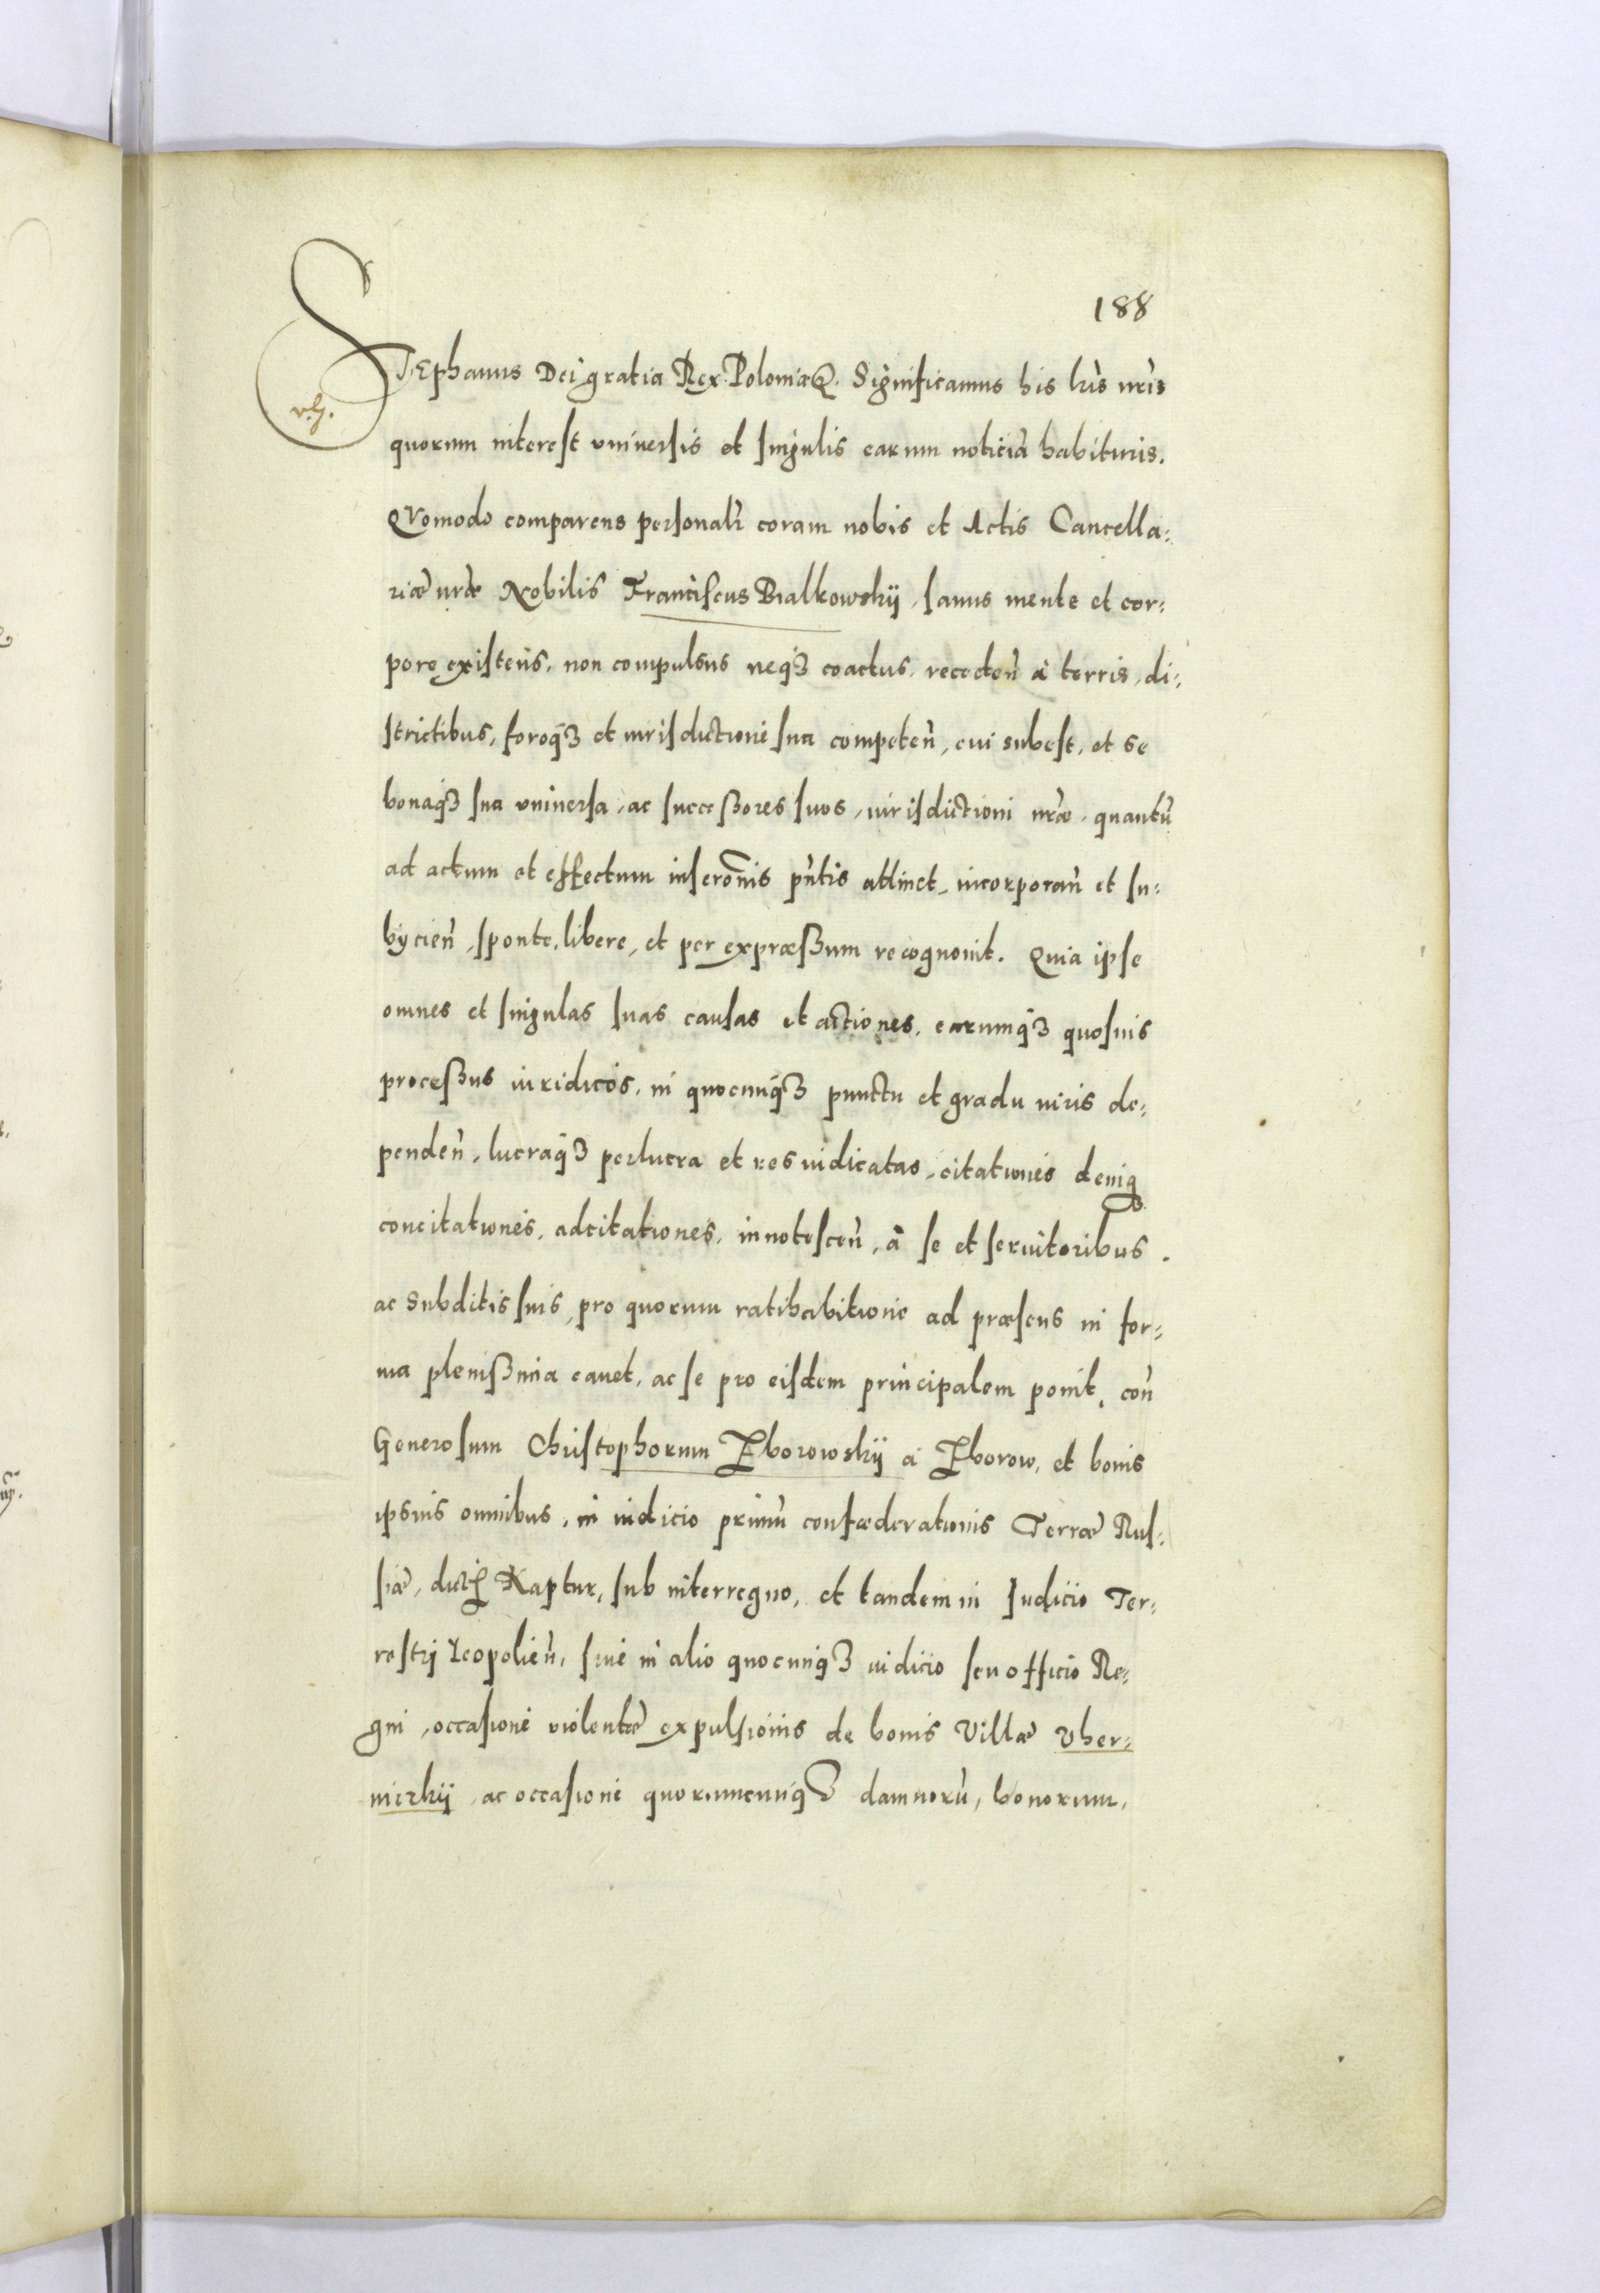 188
STEphanus Dei gratia Rex Poloniæ &. Significamus his lrīs nrīs
quorum interest vniuersis et singulis earum noticiā habituris.
QVomodo comparens personalr̄ coram nobis et Actis Cancella⸗
riæ nr̄æ Nobilis Franciscus Bialkowskÿ, sanus mente et cor⸗
pore existens, non compulsus neq3 coactus, receden̄ à terris, di⸗
strictibus, foroq3 et iurisdictione sua competen̄, cui subest, et se
bonaq3 sua vniuersa, ac succeßores suos, iurisdictioni nr̄æ, quantū
ad actum et effectum inscrōnis pn̄tis attinet, incorporan̄ et su⸗
bÿcien̄, sponte, libere, et per expræßum recognouit. Quia ipse
omnes et singulas suas causas et actiones, earumq3 quosuis
proceßus iuridicos, in quocunq3 punctu et gradu iuris de⸗
penden̄, lucraq3 perlucra et res iudicatas, citationes deniq3
concitationes, adcitationes, innotescen̄, à se et seruitoribus
ac subditis suis, pro quorum ratihabitione ad præsens in for⸗
ma plenißima cauet, ac se pro eisdem principalem ponit, con̄
Generosum Christophorum Zborowskÿ a Zborow, et bonis
ipsius omnibus, in iudicio primū confæderationis Terræ Rus⸗
siæ, dict̄ Kaptur, sub interregno, et tandem in Iudicio Ter⸗
restrj Leopolien̄, siue in alio quocunq3 iudicio seu officio Re⸗
gni, occasione violentæ expulsionis de bonis Villæ Vher⸗
nickÿ, ac occasione quorumcunq3 damnorū, bonorum,